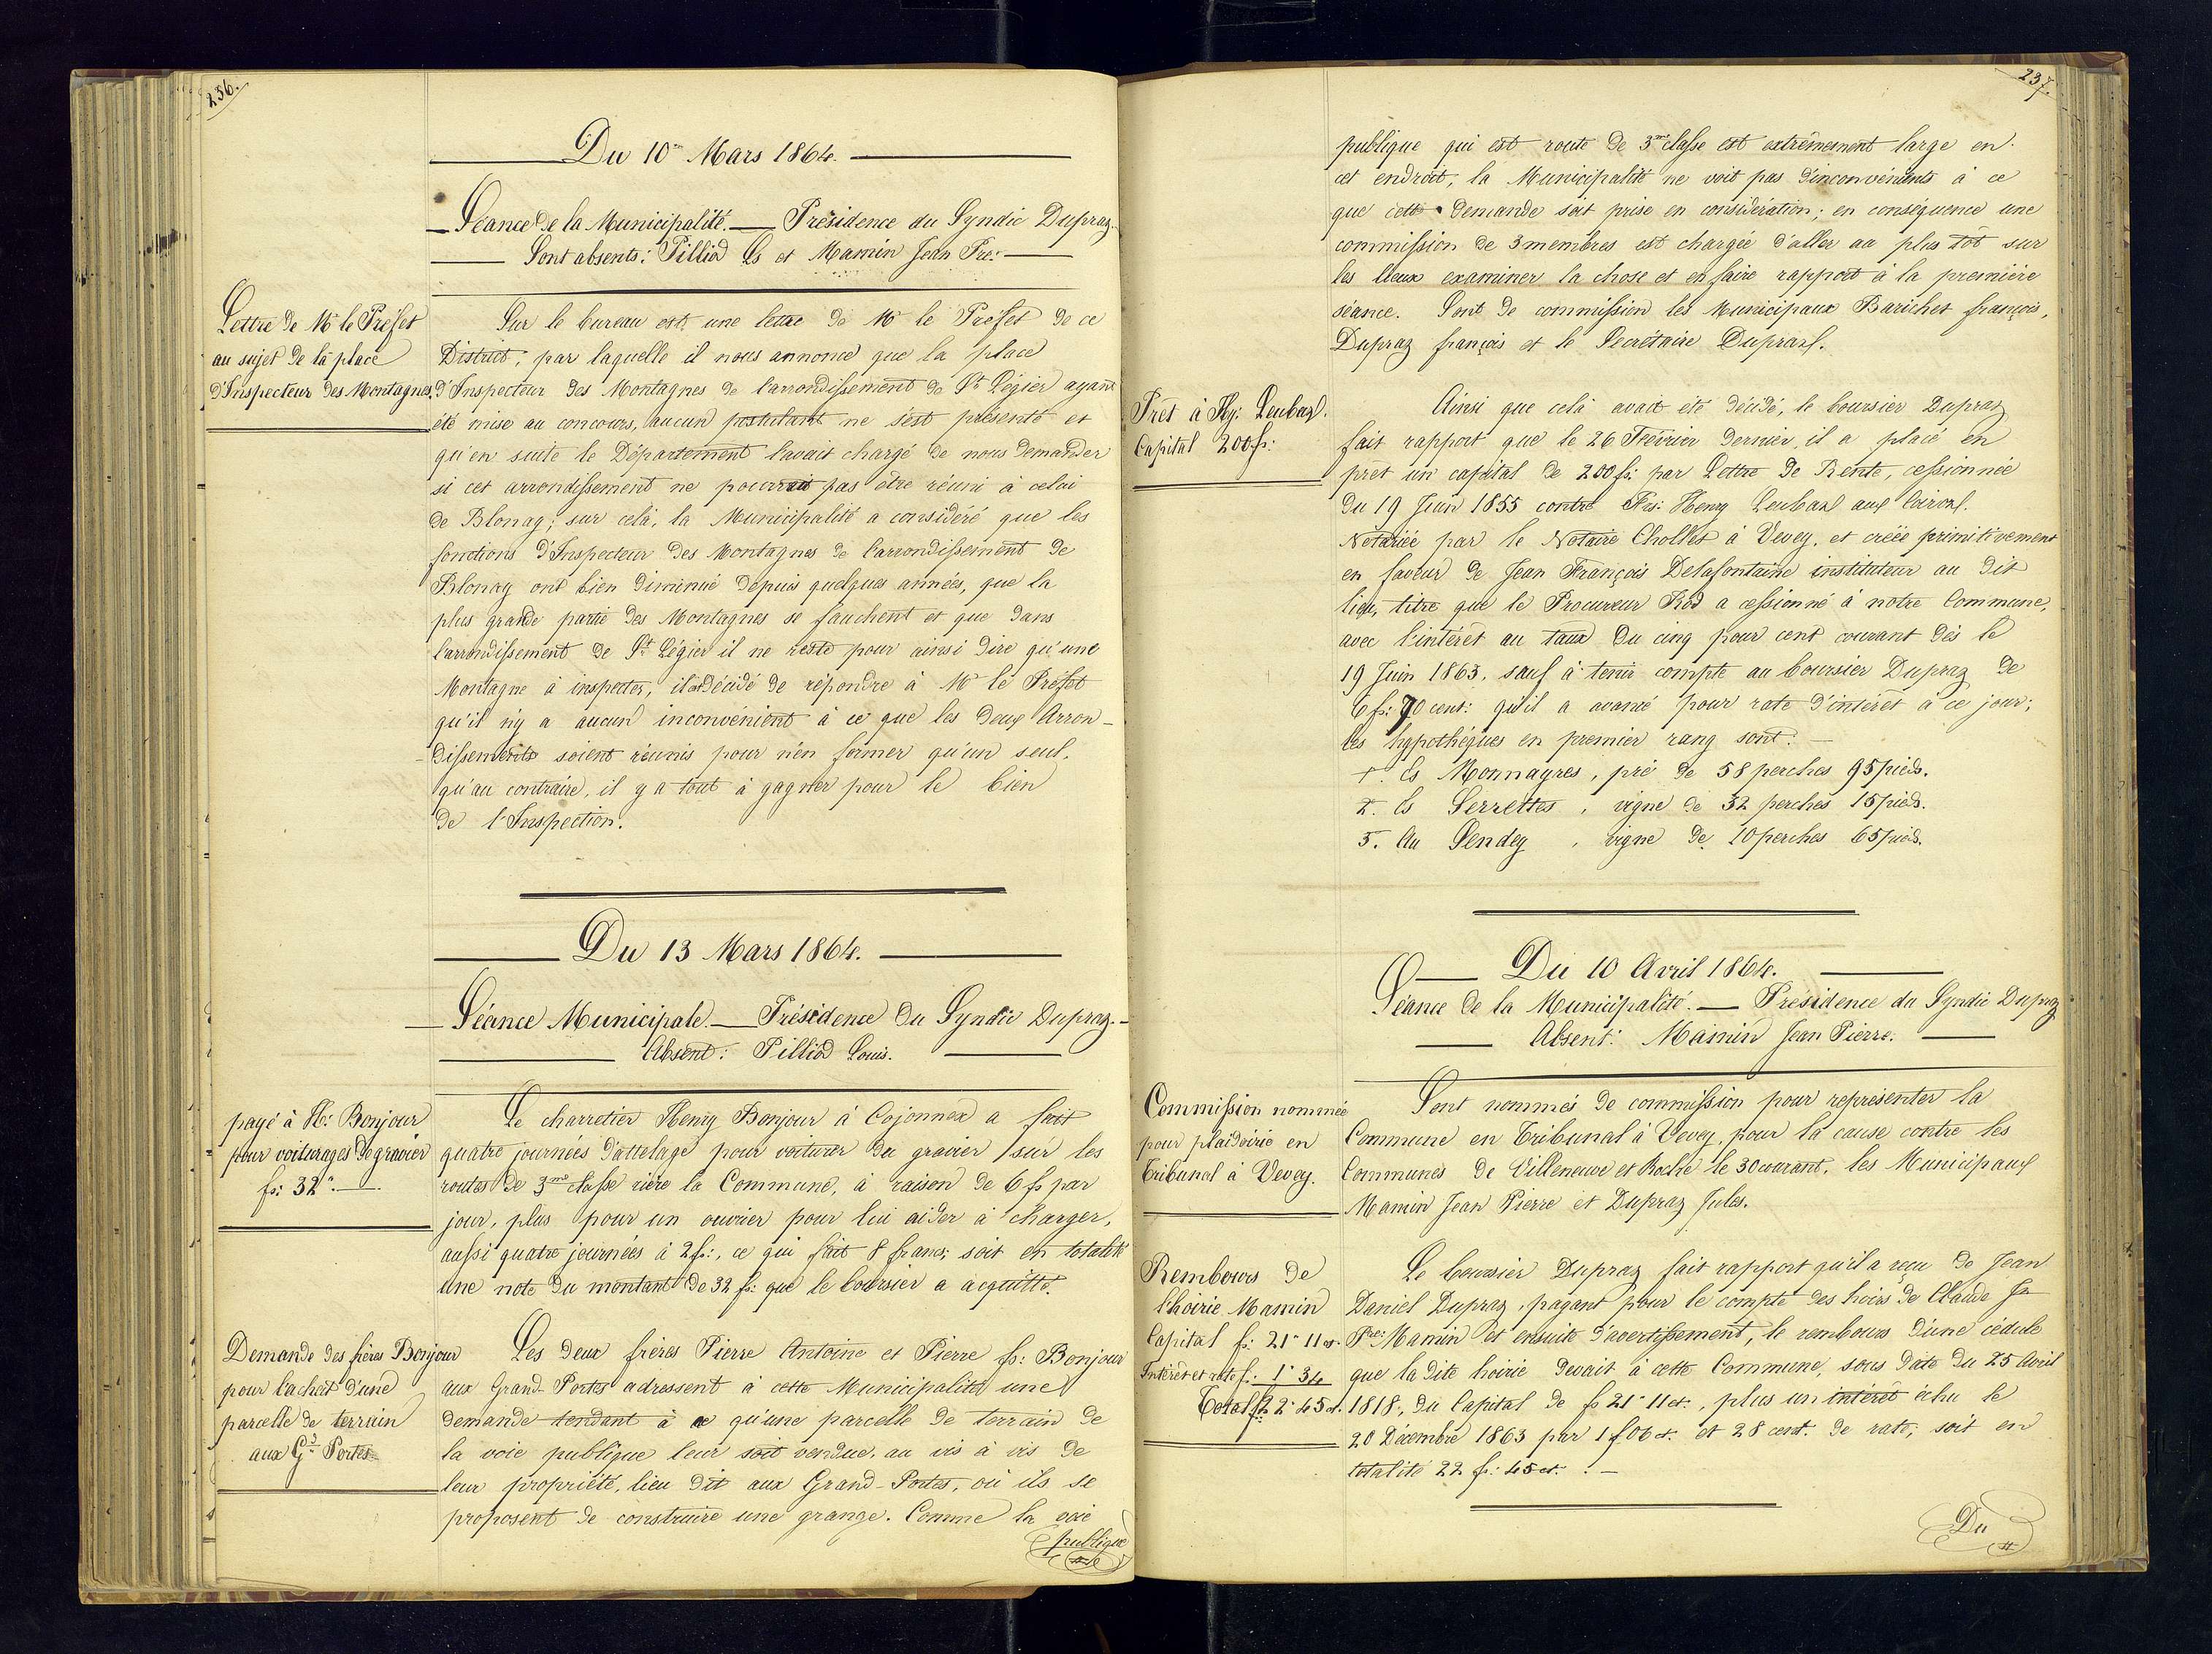 236.
Du 10me Mars 1864.
Séance de la Municipalité. — Présidence du Syndic Dupraz.
Sont absents: Pilliod Ls et Mamin Jean Pre:
Lettre de Mr le Préfet
au sujet de la place
d'Inspecteur des Montagnes.
Sur le bureau est, une lettre de Mr le Préfet de ce
District; par laquelle il nous annonce que la place
d'Inspecteur des Montagnes de l'arrondissement de St Légier ayant
été mise au concours, aucun postulant ne s'est présenté et
qu'en suite le Département l'avait chargé de nous demander
si cet arrondissement ne pourrait pas être réuni à celui
de Blonay; sur celà, la Municipalité a considéré que les
fonctions d'Inspecteur des Montagnes de l'arrondissement de
Blonay ont bien diminué depuis quelques années, que la
plus grande partie des Montagnes se fauchent et que dans
l'arrondissement de St Légier il ne reste pour ainsi dire qu'une
Montagne à inspecter, il est décidé de répondre à Mr le Préfet
qu'il n'y a aucun inconvénient à ce que les deux Arron-
-dissements soient réunis pour n'en former qu'un seul,
qu'au contraire, il y a tout à gagner pour le bien
de l'Inspection.
Du 13 Mars 1864.
Séance Municipale. — Présidence du Syndic Dupraz. —
Absent: Pilliod Louis.
payé à Hri Bonjour
pour voiturages de gravier
fs: 32".—
Le charretier Henry Bonjour à Cojonnex a fait
quatre journées d'attelage pour voiturer du gravier sur les
routes de 3me classe rière la Commune, à raison de 6 fs par
jour, plus pour un ouvrier pour lui aider à charger,
aussi quatre journées à 2 fs:, ce qui fait 8 francs; soit en totalité
une note du montant de 32 fs: que le boursier a acquitté.
Demande des frères Bonjour
pour l'achat d'une
parcelle de terrain
aux Gds Portes
Les deux frères Pierre Antoine et Pierre fs: Bonjour
aux Grand-Portes adressent à cette Municipalité une
demande tendant à ce qu'une parcelle de terrain de
la voie publique leur soit vendue, au vis à vis de
leur propriété, lieu dit aux Grand-Portes, où ils se
proposent de construire une grange. Comme la voie
publique
237.
publique qui est route de 3me classe est extrêmement large en
cet endroit, la Municipalité ne voit pas d'inconvénients à ce
que cette demande soit prise en considération; en conséquence une
commission de 3 membres est chargée d'aller au plus tôt sur
les lieux examiner la chose et en faire rapport à la première
séance. Sont de commission les Municipaux Bariches françois,
Dupraz françois et le Secrétaire Dupraz.
Prêt à Hy: Leubaz.
Capital 200 fs:
Ainsi que celà avait été décidé, le boursier Dupraz
fait rapport que le 26 Février dernier, il a placé en
pret un capital de 200 fs: par Lettre de Rente, cessionnée
du 19 Juin 1855 contre Fs: Henry Leubaz aux
Notariée par le Notaire Chollet à Vevey, et créée primitivement
en faveur de Jean François Delafontaine instituteur au dit
lieu, titre que le Procureur Rod a cessionné à notre Commune,
avec l'intérêt au taux du cinq pour cent courant dès le
19 Juin 1863, sauf à tenir compte au boursier Dupraz de
6 fs: 70 cent: qu'il a avancé pour rate d'intérêt à ce jour;
les hypothèques en premier rang sont: —
1. Es Monnayres, pré de 58 perches 95 pieds.
2. Es Serrettes, vigne de 32 perches 15 pieds.
3. Au Sendey, vigne de 10 perches 65 pieds.
Du 10 Avril 1864.
Séance de la Municipalité. — Présidence du Syndic Dupraz
Absent: Mamin Jean Pierre.
Commission nommée
pour plaidoirie en
Tribunal à Vevey.
Sont nommés de commission pour représenter la
Commune en Tribunal à Vevey, pour la cause contre les
Communes de Villeneuve et Roche le 30 courant, les Municipaux
Mamin Jean Pierre et Dupraz Jules.
Rembours de
l'hoirie Mamin
Capital fs: 21" 11 ct.
Intérêt et rate f: 1" 34
Total fs: 22" 45 ct.
Le boursier Dupraz fait rapport qu'il a reçu de Jean
Daniel Dupraz, payant pour le compte des hoirs de Claude Jn
Pre: Mamin et ensuite d'avertissement, le rembours d'une cédule
que la dite hoirie devait à cette Commune, sous date du 25 Avril
1818, du Capital de fs 21" 11 ct:, plus un intérêt échu le
20 Décembre 1863 par 1 f 06 ct. et 28 cent. de rate; soit en
totalité 22 fs: 45 ct: . —
Du